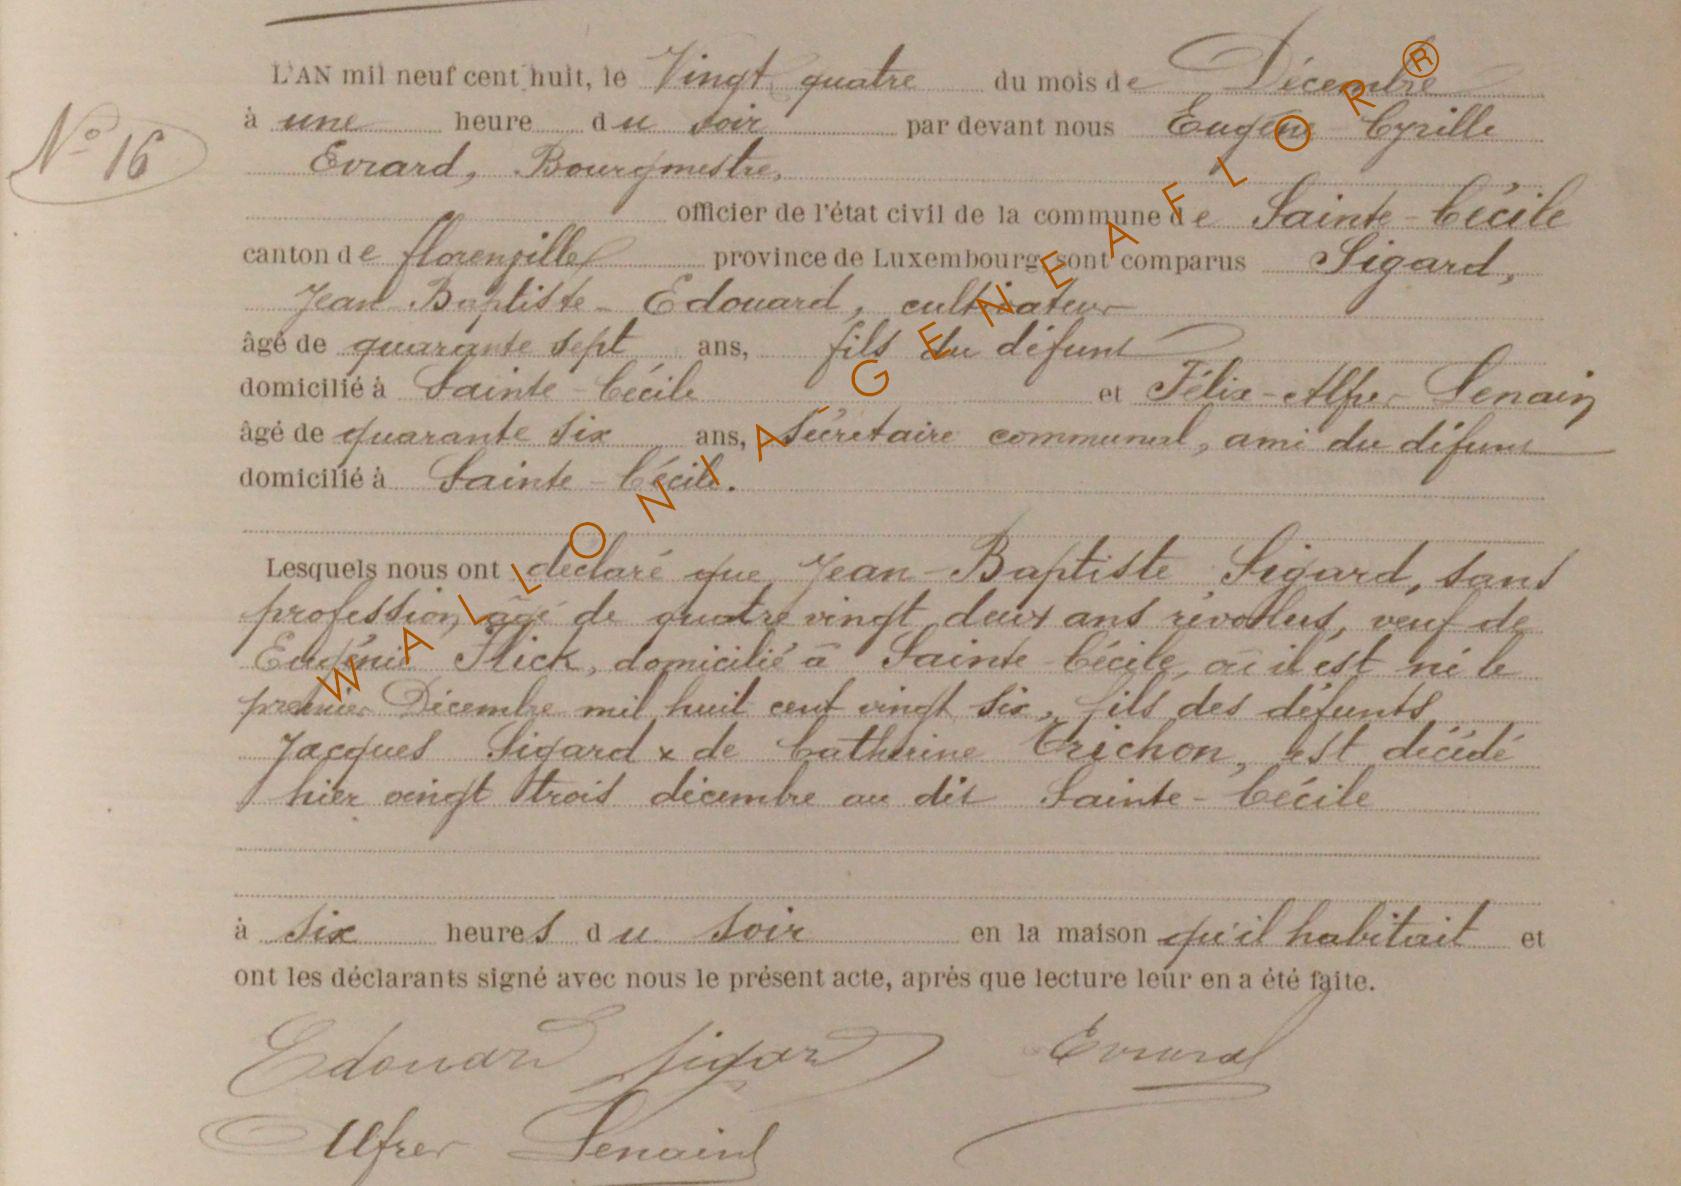 L'AN mil neuf cent huit, le Vingt quatre du mois de Décembre
N° 16
à une heure du soir par devant nous Eugène Cyrille
Evrard, Bourgmestre,
officier de l'état civil de la commune de Sainte-Cécile
canton de florenville province de Luxembourg sont comparus Sigard,
Jean Baptiste-Edouard, cultivateur
âgé de quarante sept ans, fils du défunt
domicilié à Sainte-Cécile et Félix-Alfred Lenain
âgé de quarante six ans, Sécretaire communal, ami du défunt
domicilié à Sainte-Cécile.
Lesquels nous ont déclaré que, Jean-Baptiste Sigard, sans
profession, âgé de quatre vingt deux ans révolus, veuf de
Eugénie Flick, domicilié à Sainte-Cécile, où il est né le
premier Décembre mil huit cent vingt six, fils des défunts
Jacques Sigard & de Catherine Crichon, est décédé
hier vingt trois décembre au dit Sainte-Cécile
à six heures du soir en la maison qu'il habitait et
ont les déclarants signé avec nous le présent acte, après que lecture leur en a été faite.
Edouard Sigard Evrard
Alfred Lenain
WALLONIA-GENEAFLOR®